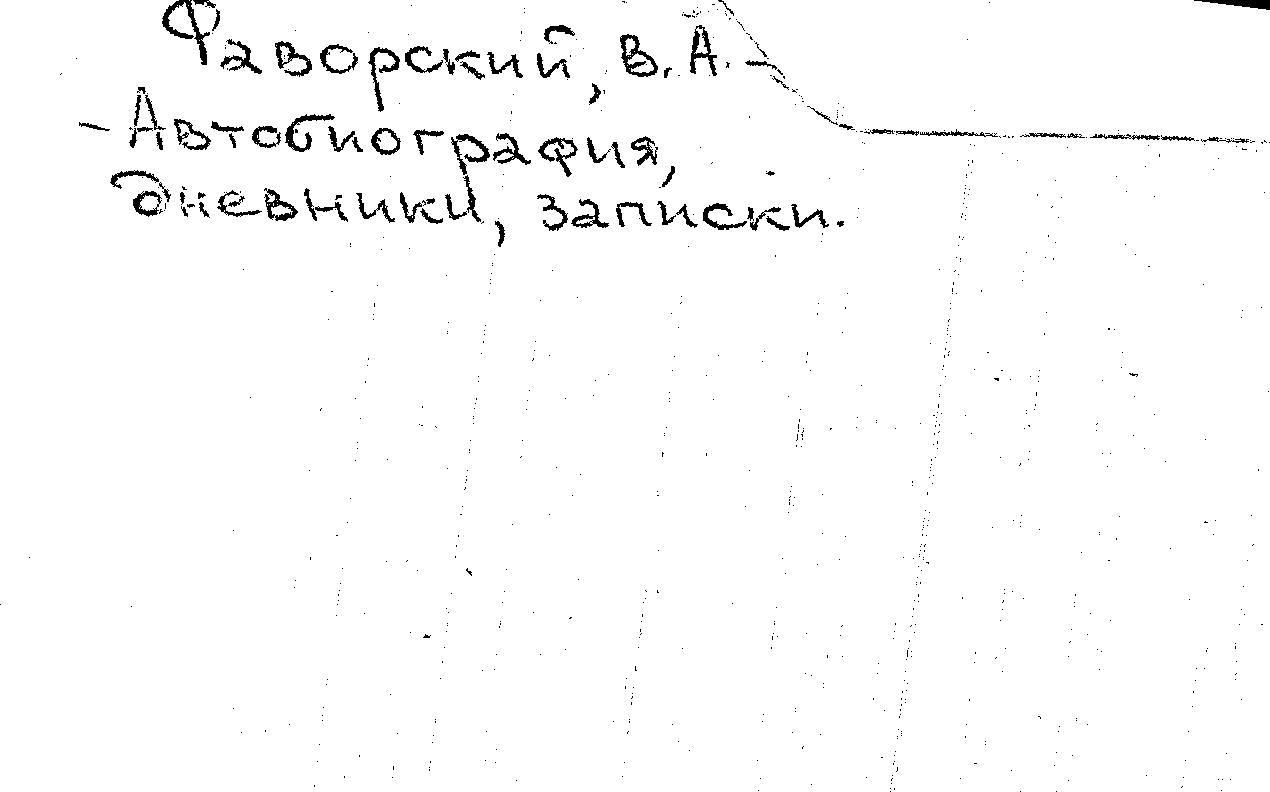 Фаворский, В. А. –
– Автобиография,
дневники, записки.